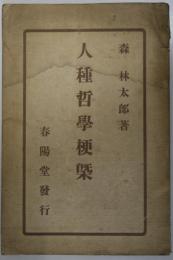 森 林太郎著
人種哲學梗槩
春陽堂發行